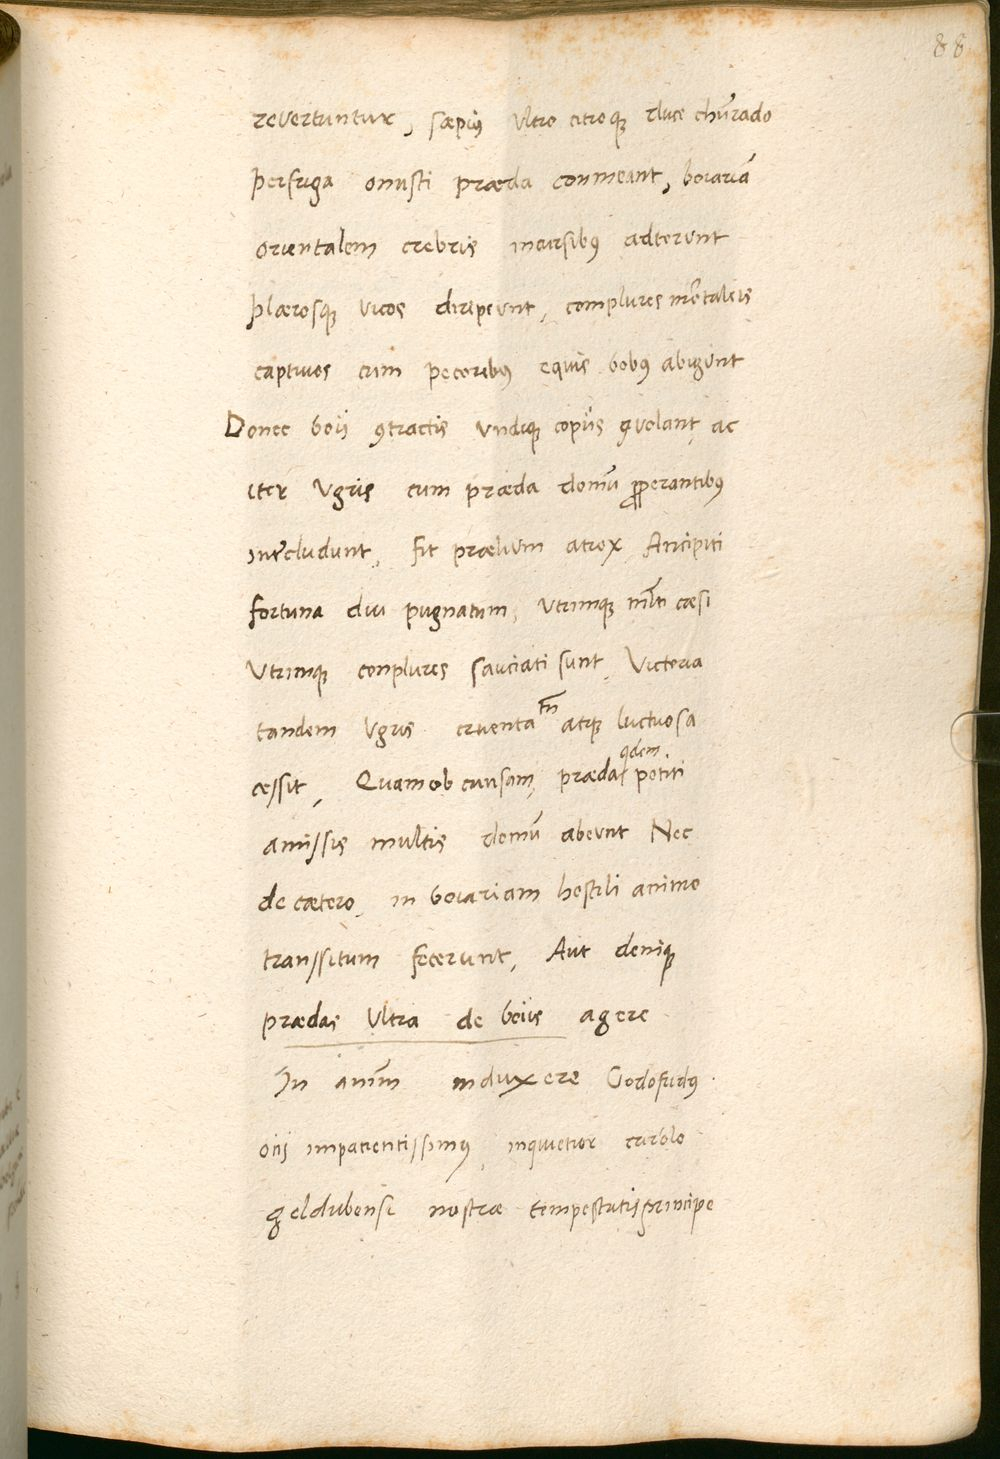 88
revertuntur, sæpiꝰ vltro citroqꝫ duce chūrado
perfuga onusti præda conmeant, boiariā
orientalem crebris incursibꝰ adterunt
plærosqꝫ vicos diripiunt, complures mortaleis
captivos cum pecoribꝰ equis bobꝰ abigunt
Donec boii ꝯtractis vndiqꝫ copiis ꝯvolant, ac
iter Vgris cum præda domū ꝓperantibꝰ
intercludunt, fit prælium atrox Ancipiti
fortuna diu pugnatum, vtrimqꝫ mlti cæsi
Vtrimqꝫ conplures sauciati sunt, Victoria
tandem Vgris cruenta tn̄ atqꝫ luctuosa
cessit, Quamob causam, præda qdem potiti
amissis multis domū abeunt Nec
de cætero, in boiariam hostili animo
transsitum fecerunt, Aut deniqꝫ
prædas Vltra de boiis agere
In anim̄ induxere Godofridꝰ
otii impatientissimꝰ, inquietior carolo
geldubensi nostræ tempestatis principe